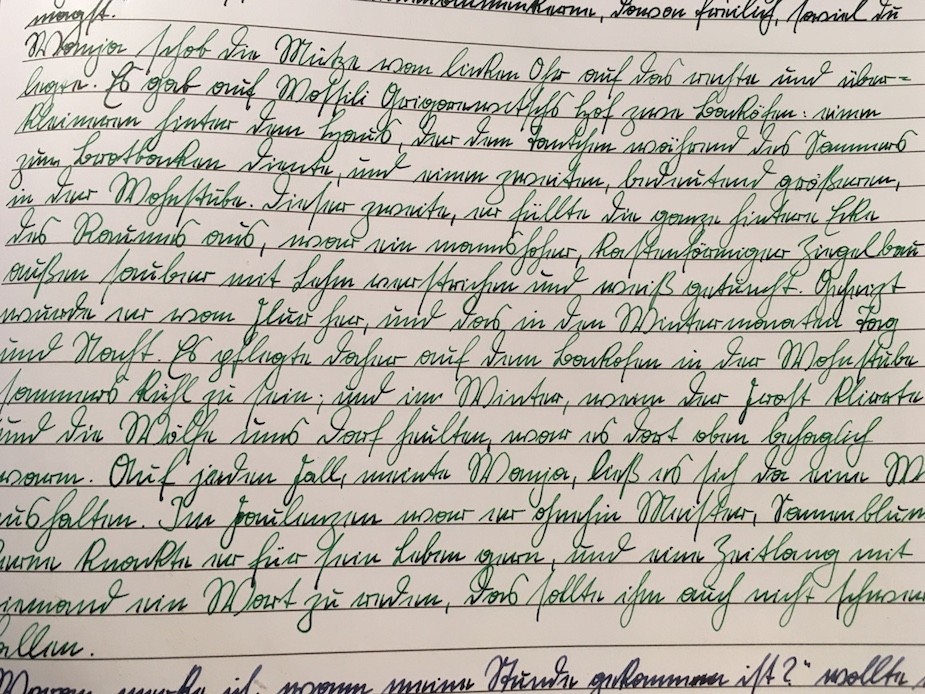 magst." Sonnenblumenkerne, davon freilich, soviel du
Wanja schob die Mütze vom linken Ohr auf das rechte und über-
legte. Es gab auf Wassili Grigorewitschs Hof zwei Backöfen: einen
kleineren hinter dem Haus, der dem Tantchen während des Sommers
zum Brotbacken diente, und einen zweiten, bedeutend größeren,
in der Wohnstube. Dieser zweite, er füllte die ganze hintere Ecke
des Raumes aus, war ein mannshoher, kastenförmiger Ziegelbau
außen sauber mit Lehm verstrichen und weiß getüncht. Geheizt
wurde er vom Flur her, und das in den Wintermonaten Tag
und Nacht. Es pflegte daher auf dem Backofen in der Wohnstube
sommers kühl zu sein; und im Winter, wenn der Frost klirrte
und die Wölfe ums Dorf heulten, war es dort oben behaglich
warm. Auf jeden Fall, meinte Wanja, ließ es sich da eine W
aushalten. Im Faulenzen war er ohnehin Meister, Sonnenblum
kerne knackte er für sein Leben gern, und eine Zeitlang mit
niemand ein Wort zu reden, das sollte ihm auch nicht schwer
fallen.
"Woran merke ich, wann meine Stunde gekommen ist?" wollte